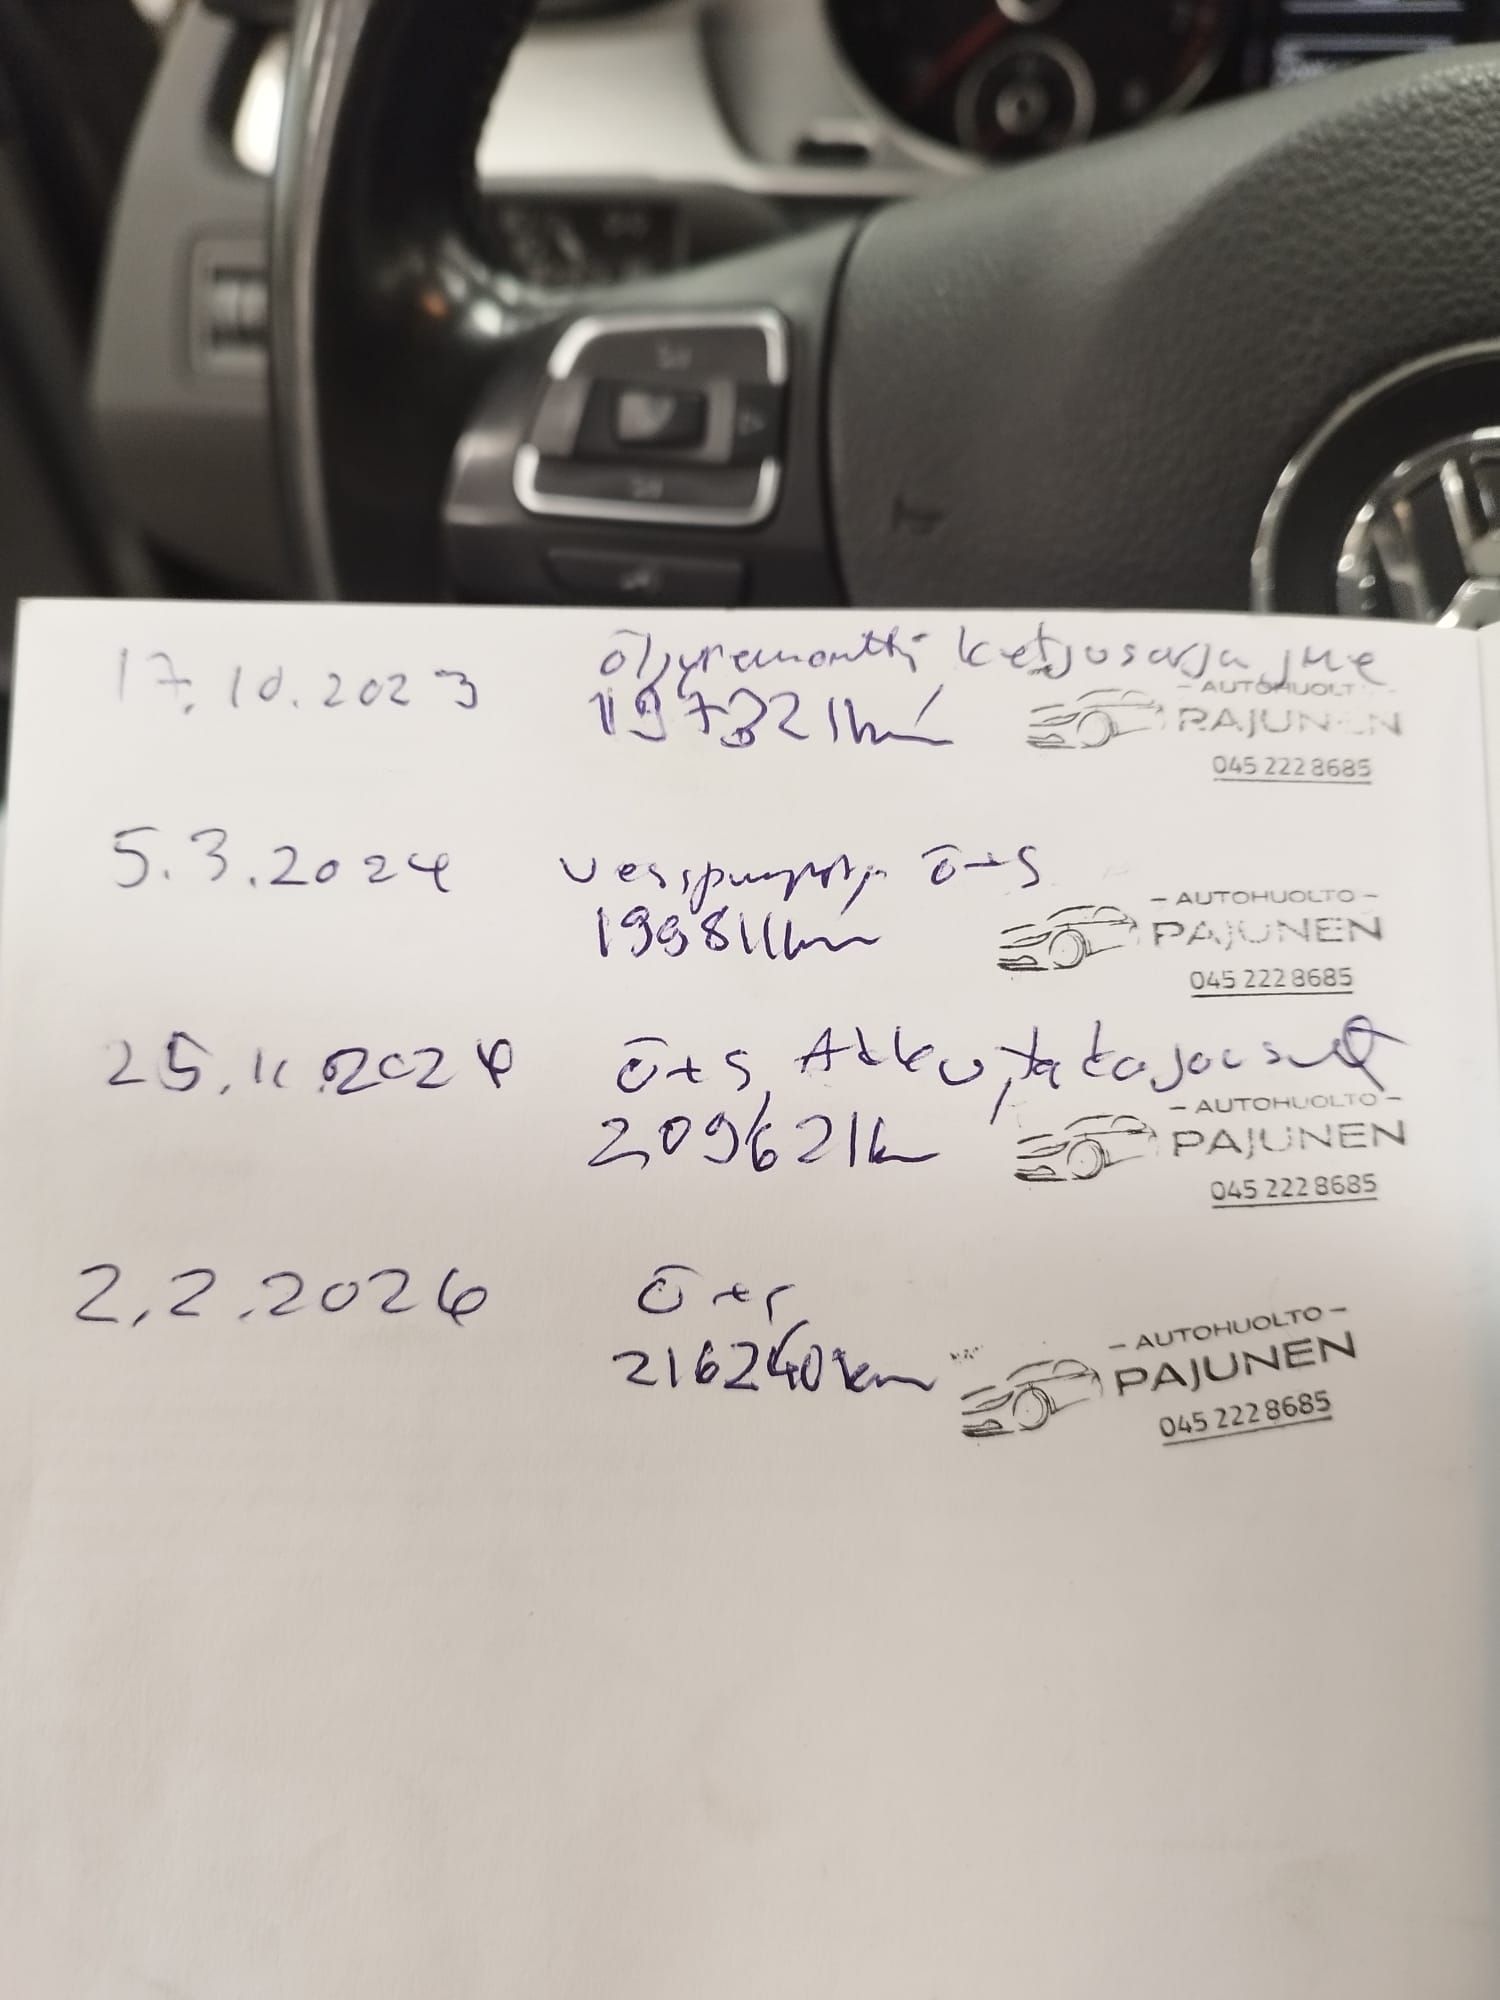 17.10.2023 öljyremontti ketjusarja jne
197321km
- AUTOHUOLTO
PAJUNEN
045 222 8685
5.3.2024 vesipumppu ö+s
199811km
- AUTOHUOLTO -
PAJUNEN
045 222 8685
25.11.2024 ö+s, Akku, takajouset
209621km
- AUTOHUOLTO -
PAJUNEN
045 222 8685
2.2.2026 ö+s
216240km
- AUTOHUOLTO -
PAJUNEN
045 222 8685